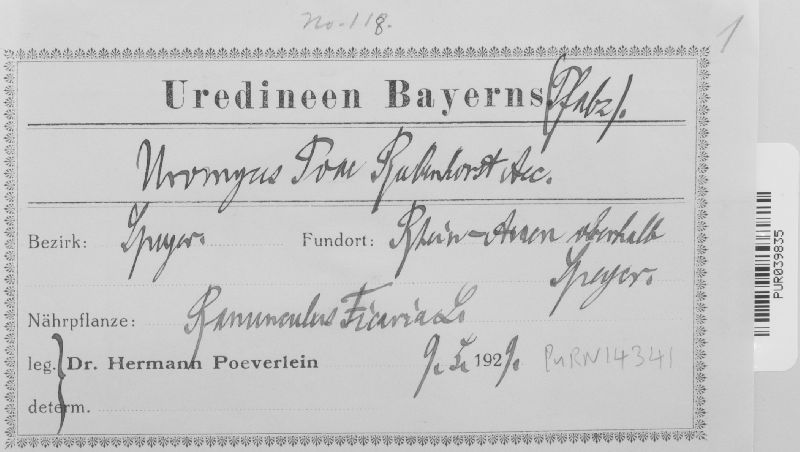 No. 118.
1
Uredineen Bayerns. (Pfalz).
Uromyces Poae Rabenhorst Aec.
Bezirk: Speyer. Fundort: Rhein-Auen oberhalb
Speyer.
Nährpflanze: Ranunculus Ficaria L.
leg. } Dr. Hermann Poeverlein 9. 5. 1929. PURN14341
determ.
PUR039835